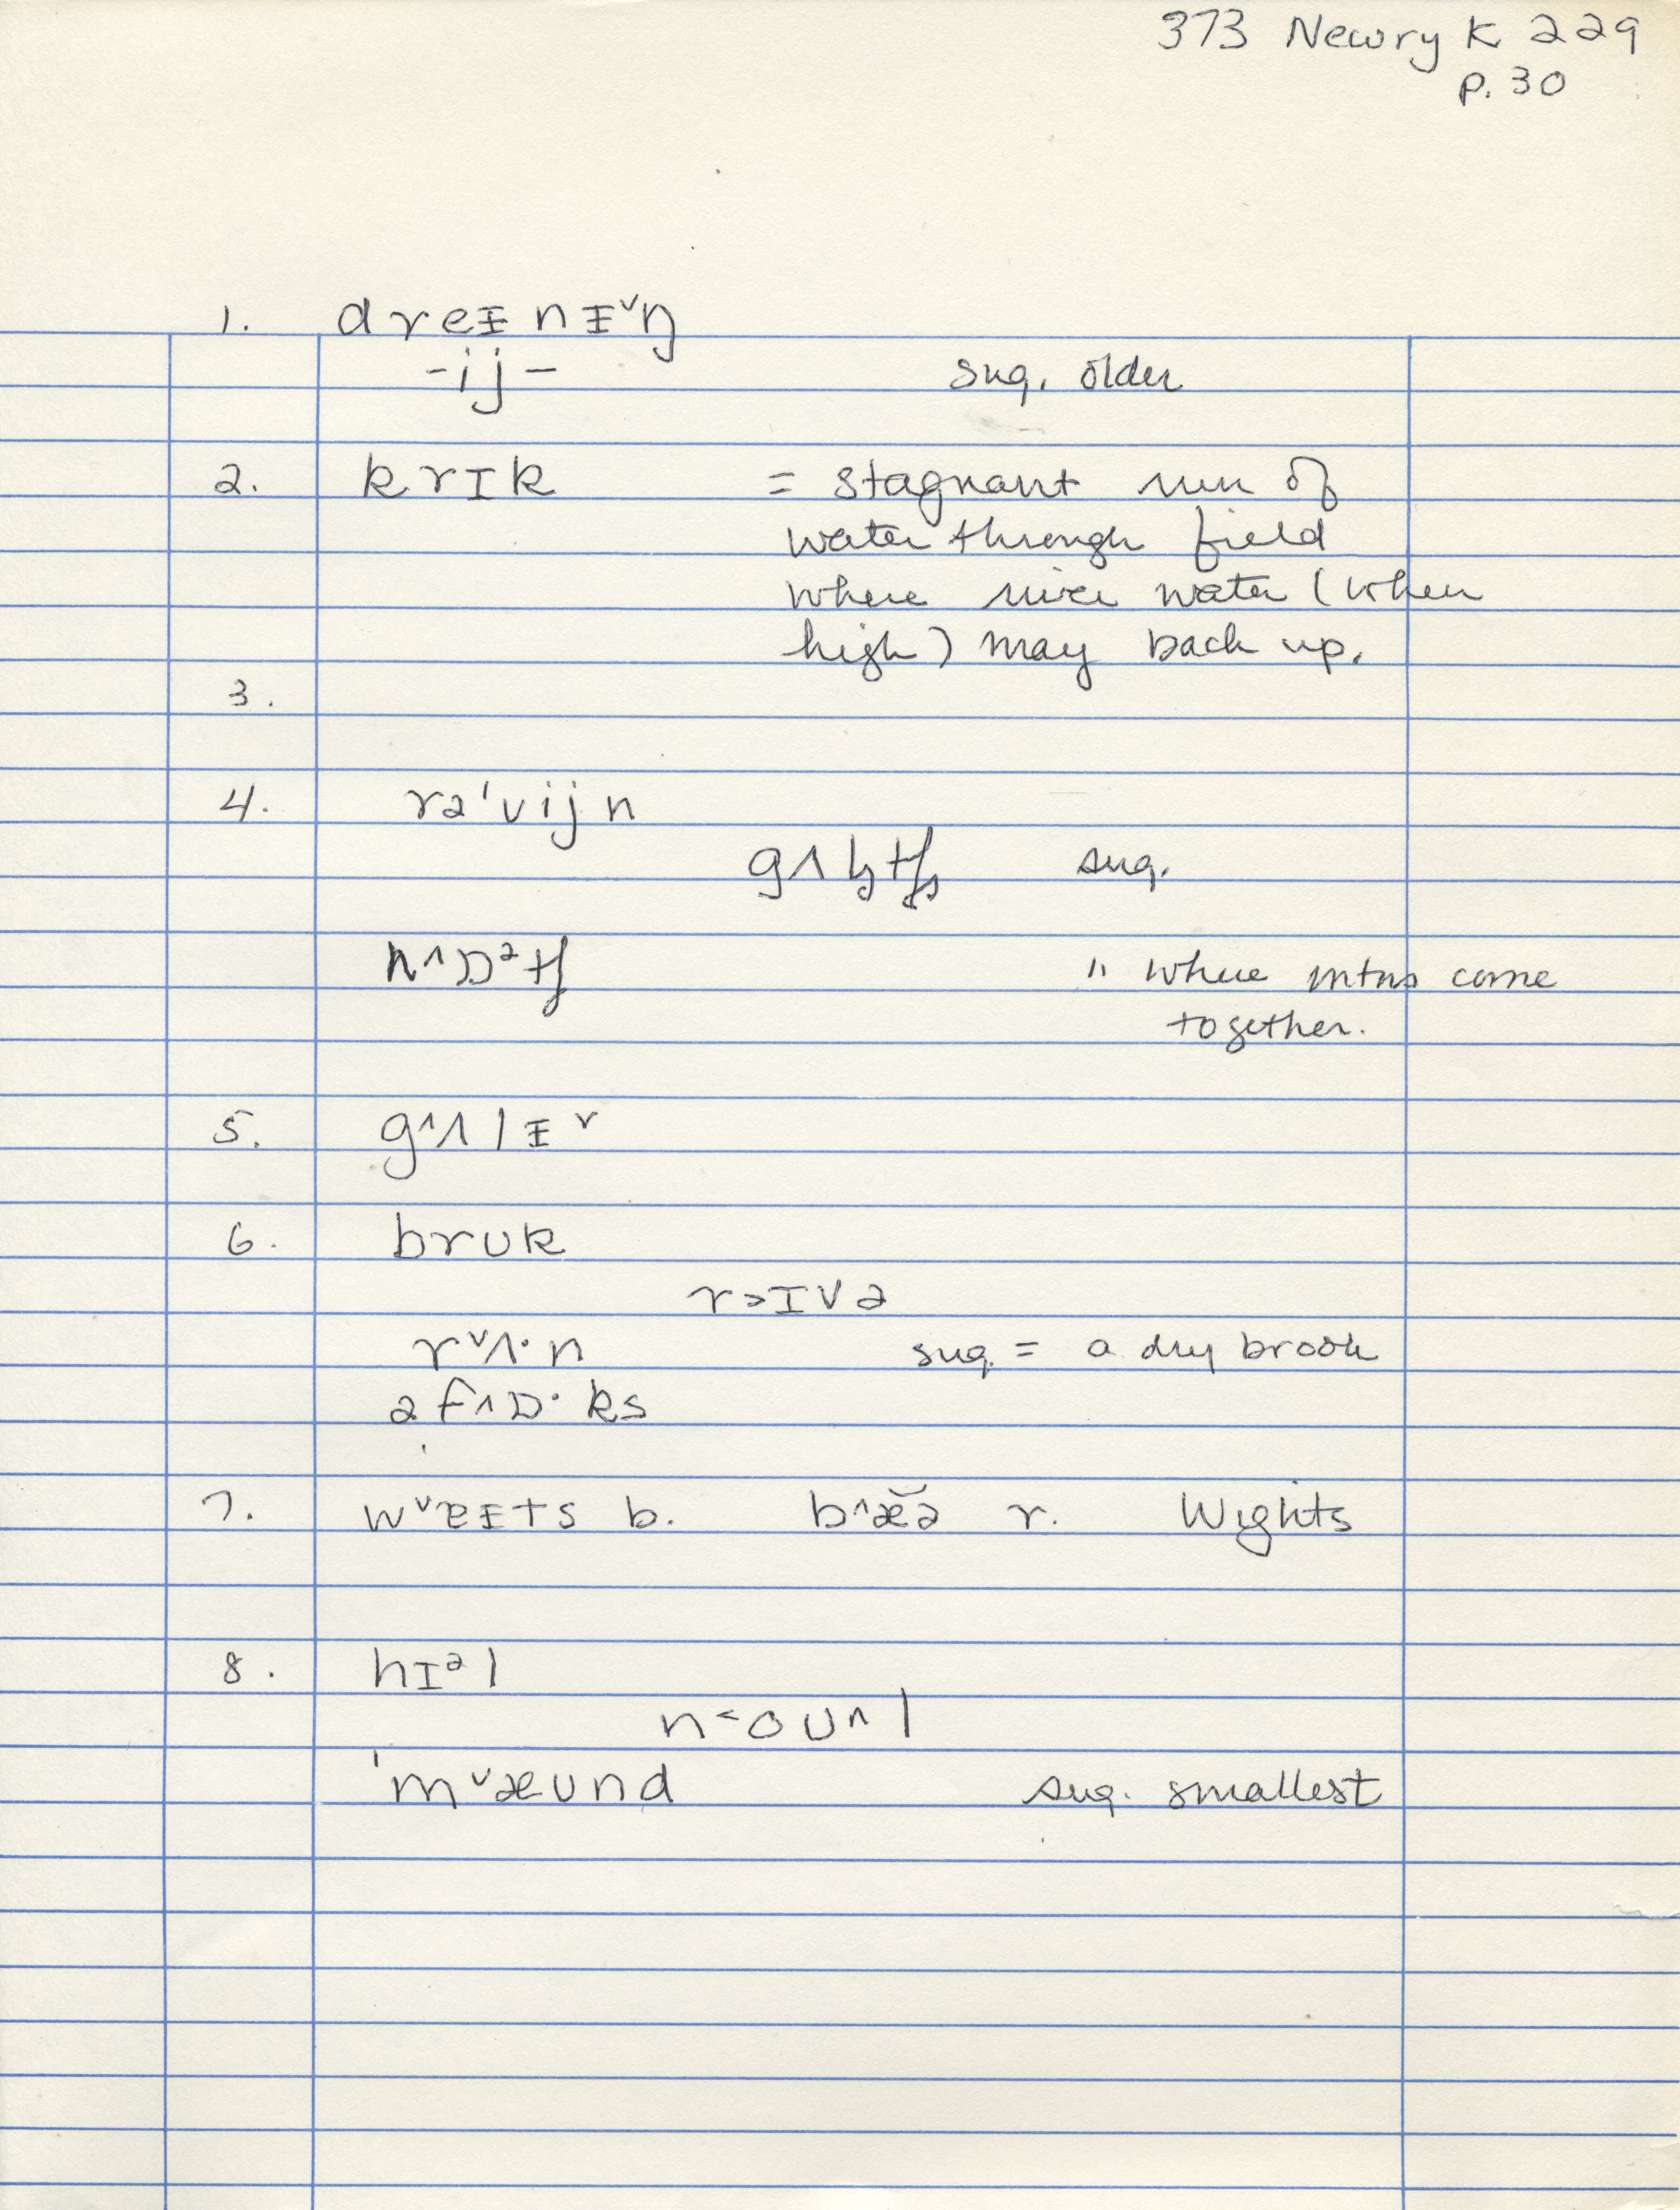 373 Newry K 229
p. 30
1. dreᵻnᵻ˅ŋ
-ij- sug. older
2. krɪk = stagnant run of
water through field
where river water (when
high) may back up.
3.
4. rə'vijn
sug.
" where mtns come
together.
5. g^ʌlᵻ˅
6. brʊk
r>ɪvə
r˅ʌ·n sug. = a dry brook
ə f^ɒ·ks
7. w˅ɐᵻts b. b^æ̆ə r. Wights
8. hɪᵊl
n<oʊ^l
'm˅æʊnd sug. smallest